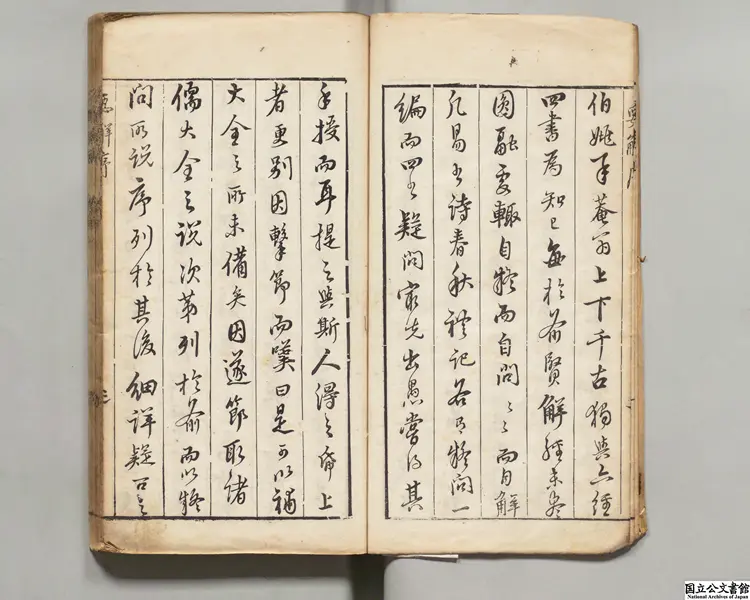 伯姚承菴翁上下千古獨與六經
四書為知已每於前賢解經未盡
圓融處輒自疑而自問〻〻而自解
凡易書詩春秋禮記各有疑問一
編而四書疑問最先出愚嘗得其
手授而耳提之與斯人得之席上
者更別因擊節而嘆曰是可以補
大全之所未備矣因遂節取諸
儒大全之說次第列於前而以疑
問所說序列於其後細詳疑問之
三
国立公文書館
National Archives of Japan